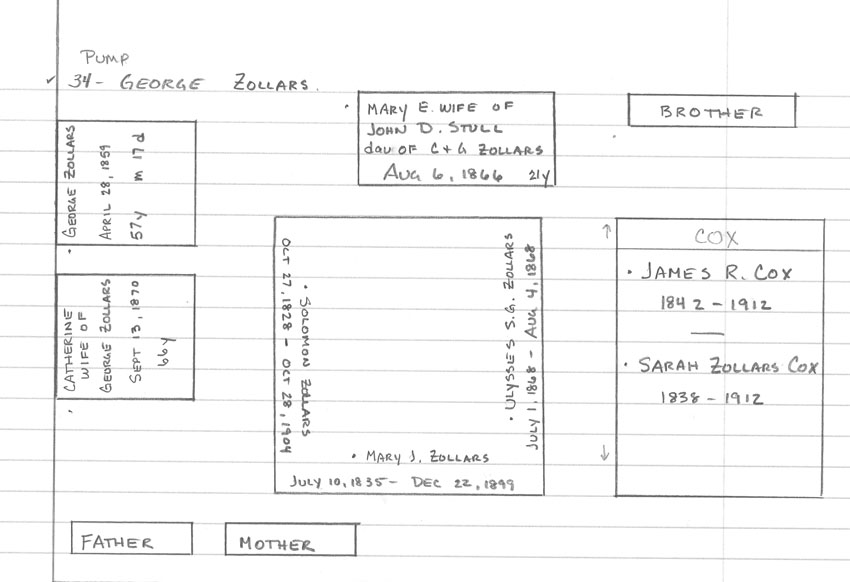 PUMP
✓ 34 - GEORGE ZOLLARS.
GEORGE ZOLLARS
APRIL 28, 1859
57y m 17d
MARY E. WIFE OF
JOHN D. STULL
dau OF C + G ZOLLARS
AUG 6, 1866 21y
BROTHER
CATHERINE
WIFE OF
GEORGE ZOLLARS
SEPT 13, 1870
66y
• SOLOMON ZOLLARS
OCT 27, 1828 - OCT 28, 1904
• ULYSSES S.G. ZOLLARS
JULY 1, 1868 - AUG 4, 1868
• MARY J. ZOLLARS
JULY 10, 1835 - DEC 22, 1899
COX
• JAMES R. COX
1842 - 1912
• SARAH ZOLLARS COX
1838 - 1912
FATHER
MOTHER